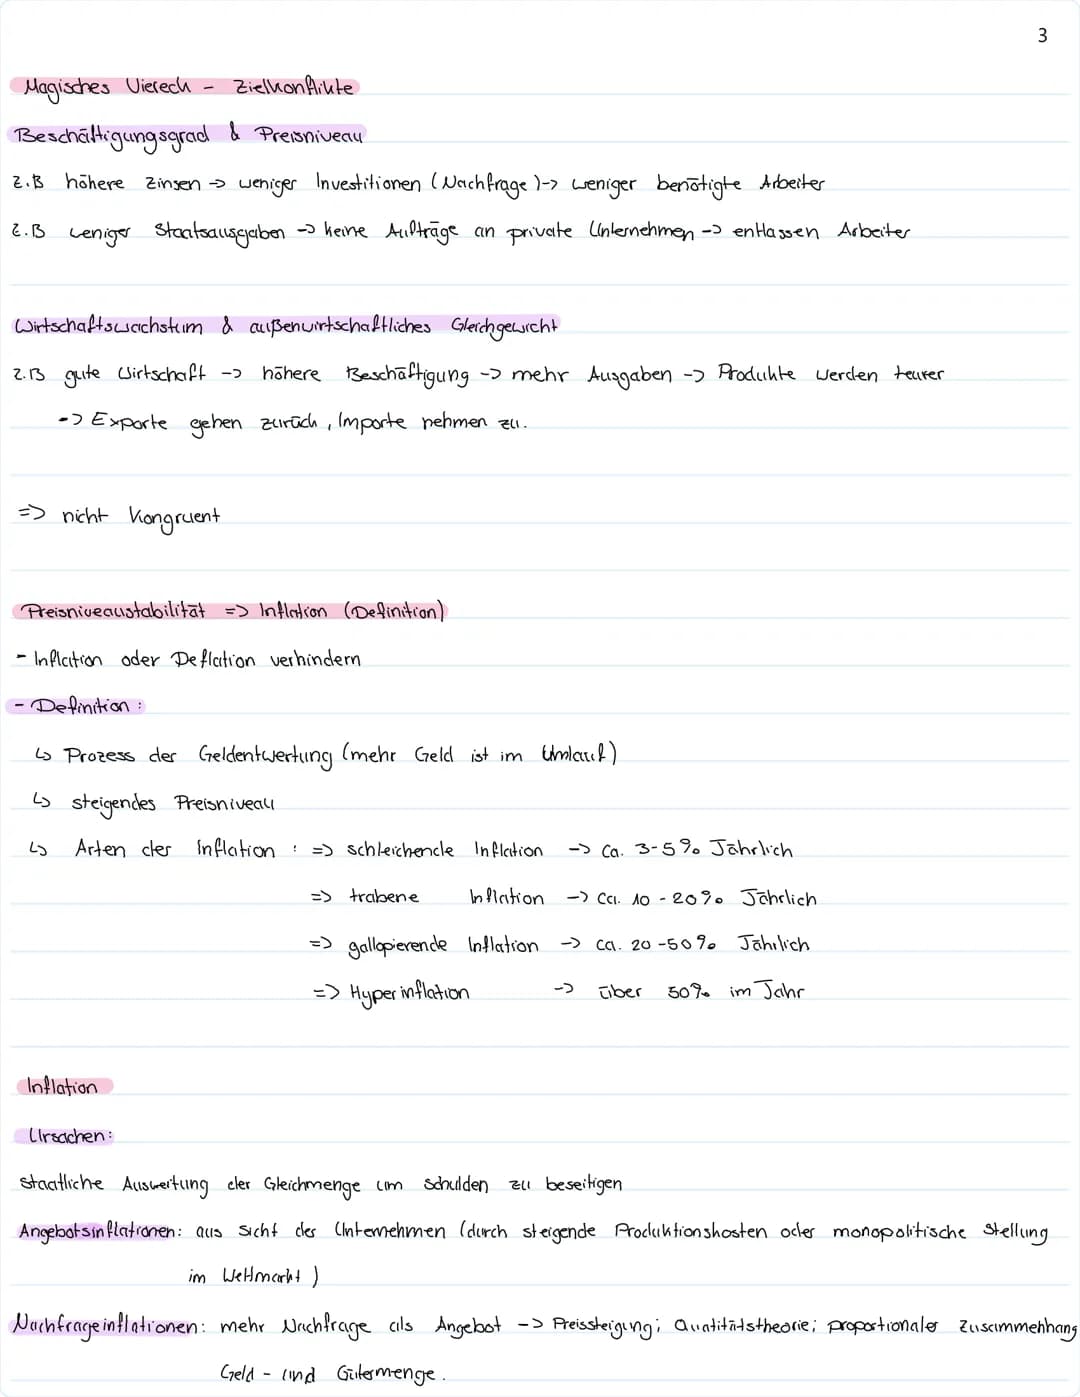 3
Magisches Viereck - Zielkonflikte
Beschäftigungsgrad & Preisniveau
z.B höhere Zinsen -> weniger Investitionen (Nachfrage)-> weniger benötigte Arbeiter
z.B weniger Staatsausgaben -> keine Aufträge an private Unternehmen -> entlassen Arbeiter
Wirtschaftswachstum & außenwirtschaftliches Gleichgewicht
z.B gute Wirtschaft -> höhere Beschäftigung -> mehr Ausgaben -> Produkte werden teurer
-> Exporte gehen zurück, Importe nehmen zu.
=> nicht Kongruent
Preisniveaustabilität => Inflation (Definition)
- Inflation oder Deflation verhindern
- Definition:
↳ Prozess der Geldentwertung (mehr Geld ist im Umlauf)
↳ steigendes Preisniveau
↳ Arten der Inflation : => schleichende Inflation -> ca. 3-5% Jährlich
=> trabene Inflation -> ca. 10-20% Jährlich
=> gallopierende Inflation -> ca. 20-50% Jährlich
=> Hyperinflation -> über 50% im Jahr
Inflation
Ursachen:
staatliche Ausweitung der Gleichmenge um Schulden zu beseitigen
Angebotsinflationen: aus Sicht der Unternehmen (durch steigende Produktionskosten oder monopolitische Stellung
im Weltmarkt)
Nachfrageinflationen: mehr Nachfrage als Angebot -> Preissteigung; Quatitätstheorie; proportionaler Zusammenhang
Geld- und Gütermenge.